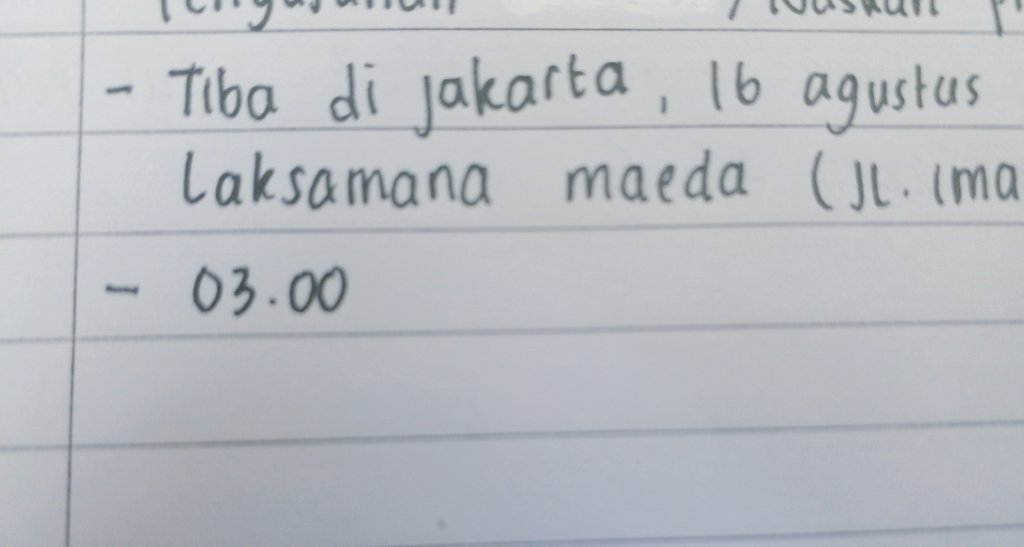 - Tiba di jakarta, 16 agustus
Laksamana maeda (Jl. Ima
- 03.00